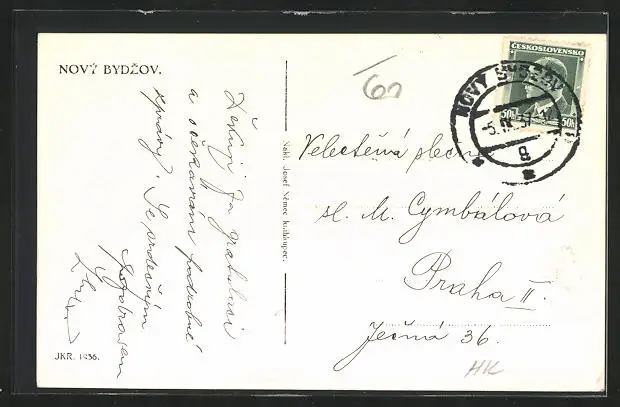 NOVÝ BYDŽOV.
Děkuji za gratulaci
a očekávám podrobné
zprávy. Se srdečným
pozdravem
JKR. 1936.
Nakl. Josef Němec knihkupec.
60
ČESKOSLOVENSKO
50h 50h
NOVÝ BYDŽOV
8
Velectěná slečna
sl. M. Cymbálová
Praha II.
Ječná 36.
HK